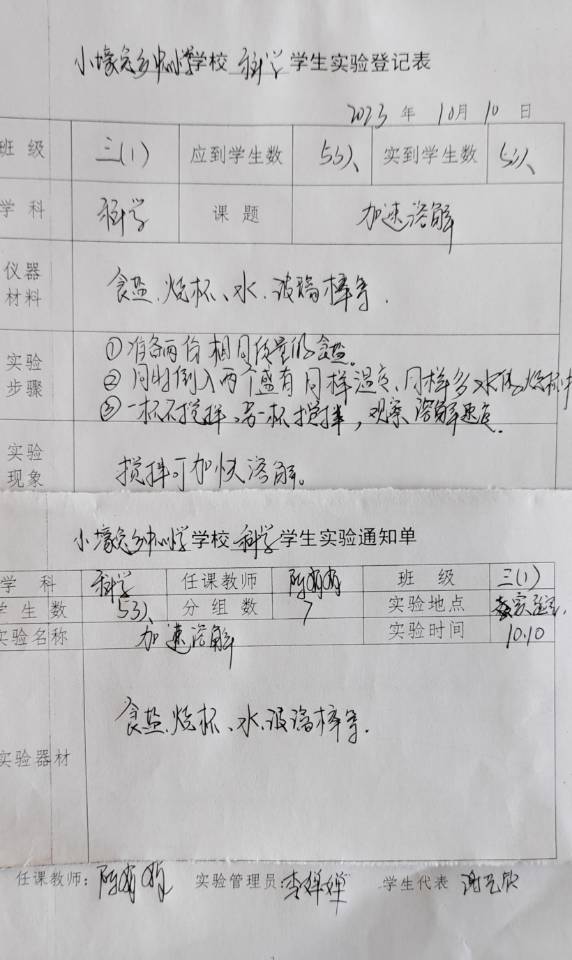 小壕兔乡中心小学学校 科学 学生实验登记表
2023 年 10月 10 日
班 级 三(1) 应到学生数 53人 实到学生数 53人
学 科 科学 课 题 加速溶解
仪器材料 食盐、烧杯、水、玻璃棒等.
实验步骤 ①准备两份相同质量的食盐。
②同时倒入两个盛有同样温度、同样多水的烧杯中
③一杯不搅拌,另一杯搅拌,观察溶解速度.
实验现象 搅拌可加快溶解。
小壕兔乡中心小学学校 科学 学生实验通知单
学 科 科学 任课教师 陈娟娟 班 级 三(1)
学生数 53人 分 组 数 7 实验地点 实验室
实验名称 加速溶解 实验时间 10.10
实验器材 食盐、烧杯、水、玻璃棒等.
任课教师: 实验管理员: 李婵婵 学生代表